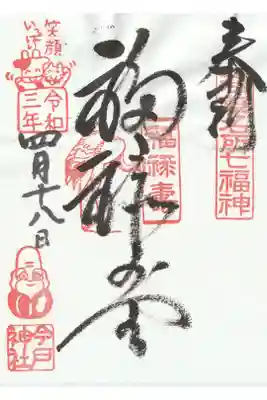 奉拝
浅草名所七福神
福禄寿
福禄寿
笑顔
いっぱい
令和
三年
四月十八日
今戸
神社